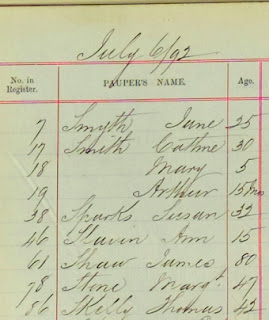 July 6/92
No. in Register. PAUPER'S NAME. Age.
7 Smyth Jane 25
17 Smith Catme 30
18 Mary 5
19 Arthur 15 mos
38 Sparks Susan 32
46 Slavin Ann 15
61 Shaw James 80
78 Stone Margt. 47
86 Skelly Thomas 42